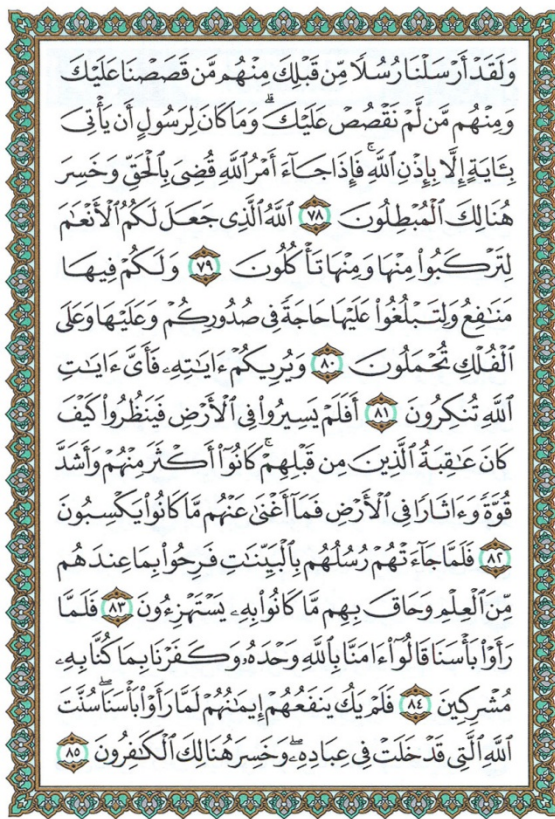 وَلَقَدۡ أَرۡسَلۡنَا رُسُلٗا مِّن قَبۡلِكَ مِنۡهُم مَّن قَصَصۡنَا عَلَيۡكَ
وَمِنۡهُم مَّن لَّمۡ نَقۡصُصۡ عَلَيۡكَۗ وَمَا كَانَ لِرَسُولٍ أَن يَأۡتِيَ
بِـَٔايَةٍ إِلَّا بِإِذۡنِ ٱللَّهِۚ فَإِذَا جَآءَ أَمۡرُ ٱللَّهِ قُضِيَ بِٱلۡحَقِّ وَخَسِرَ
هُنَالِكَ ٱلۡمُبۡطِلُونَ ٧٨ ٱللَّهُ ٱلَّذِي جَعَلَ لَكُمُ ٱلۡأَنۡعَٰمَ
لِتَرۡكَبُواْ مِنۡهَا وَمِنۡهَا تَأۡكُلُونَ ٧٩ وَلَكُمۡ فِيهَا
مَنَٰفِعُ وَلِتَبۡلُغُواْ عَلَيۡهَا حَاجَةٗ فِي صُدُورِكُمۡ وَعَلَيۡهَا وَعَلَى
ٱلۡفُلۡكِ تُحۡمَلُونَ ٨٠ وَيُرِيكُمۡ ءَايَٰتِهِۦ فَأَيَّ ءَايَٰتِ
ٱللَّهِ تُنكِرُونَ ٨١ أَفَلَمۡ يَسِيرُواْ فِي ٱلۡأَرۡضِ فَيَنظُرُواْ كَيۡفَ
كَانَ عَٰقِبَةُ ٱلَّذِينَ مِن قَبۡلِهِمۡۚ كَانُوٓاْ أَكۡثَرَ مِنۡهُمۡ وَأَشَدَّ
قُوَّةٗ وَءَاثَارٗا فِي ٱلۡأَرۡضِ فَمَآ أَغۡنَىٰ عَنۡهُم مَّا كَانُواْ يَكۡسِبُونَ
٨٢ فَلَمَّا جَآءَتۡهُمۡ رُسُلُهُم بِٱلۡبَيِّنَٰتِ فَرِحُواْ بِمَا عِندَهُم
مِّنَ ٱلۡعِلۡمِ وَحَاقَ بِهِم مَّا كَانُواْ بِهِۦ يَسۡتَهۡزِءُونَ ٨٣ فَلَمَّا
رَأَوۡاْ بَأۡسَنَا قَالُوٓاْ ءَامَنَّا بِٱللَّهِ وَحۡدَهُۥ وَكَفَرۡنَا بِمَا كُنَّا بِهِۦ
مُشۡرِكِينَ ٨٤ فَلَمۡ يَكُ يَنفَعُهُمۡ إِيمَٰنُهُمۡ لَمَّا رَأَوۡاْ بَأۡسَنَاۖ سُنَّتَ
ٱللَّهِ ٱلَّتِي قَدۡ خَلَتۡ فِي عِبَادِهِۦۖ وَخَسِرَ هُنَالِكَ ٱلۡكَٰفِرُونَ ٨٥